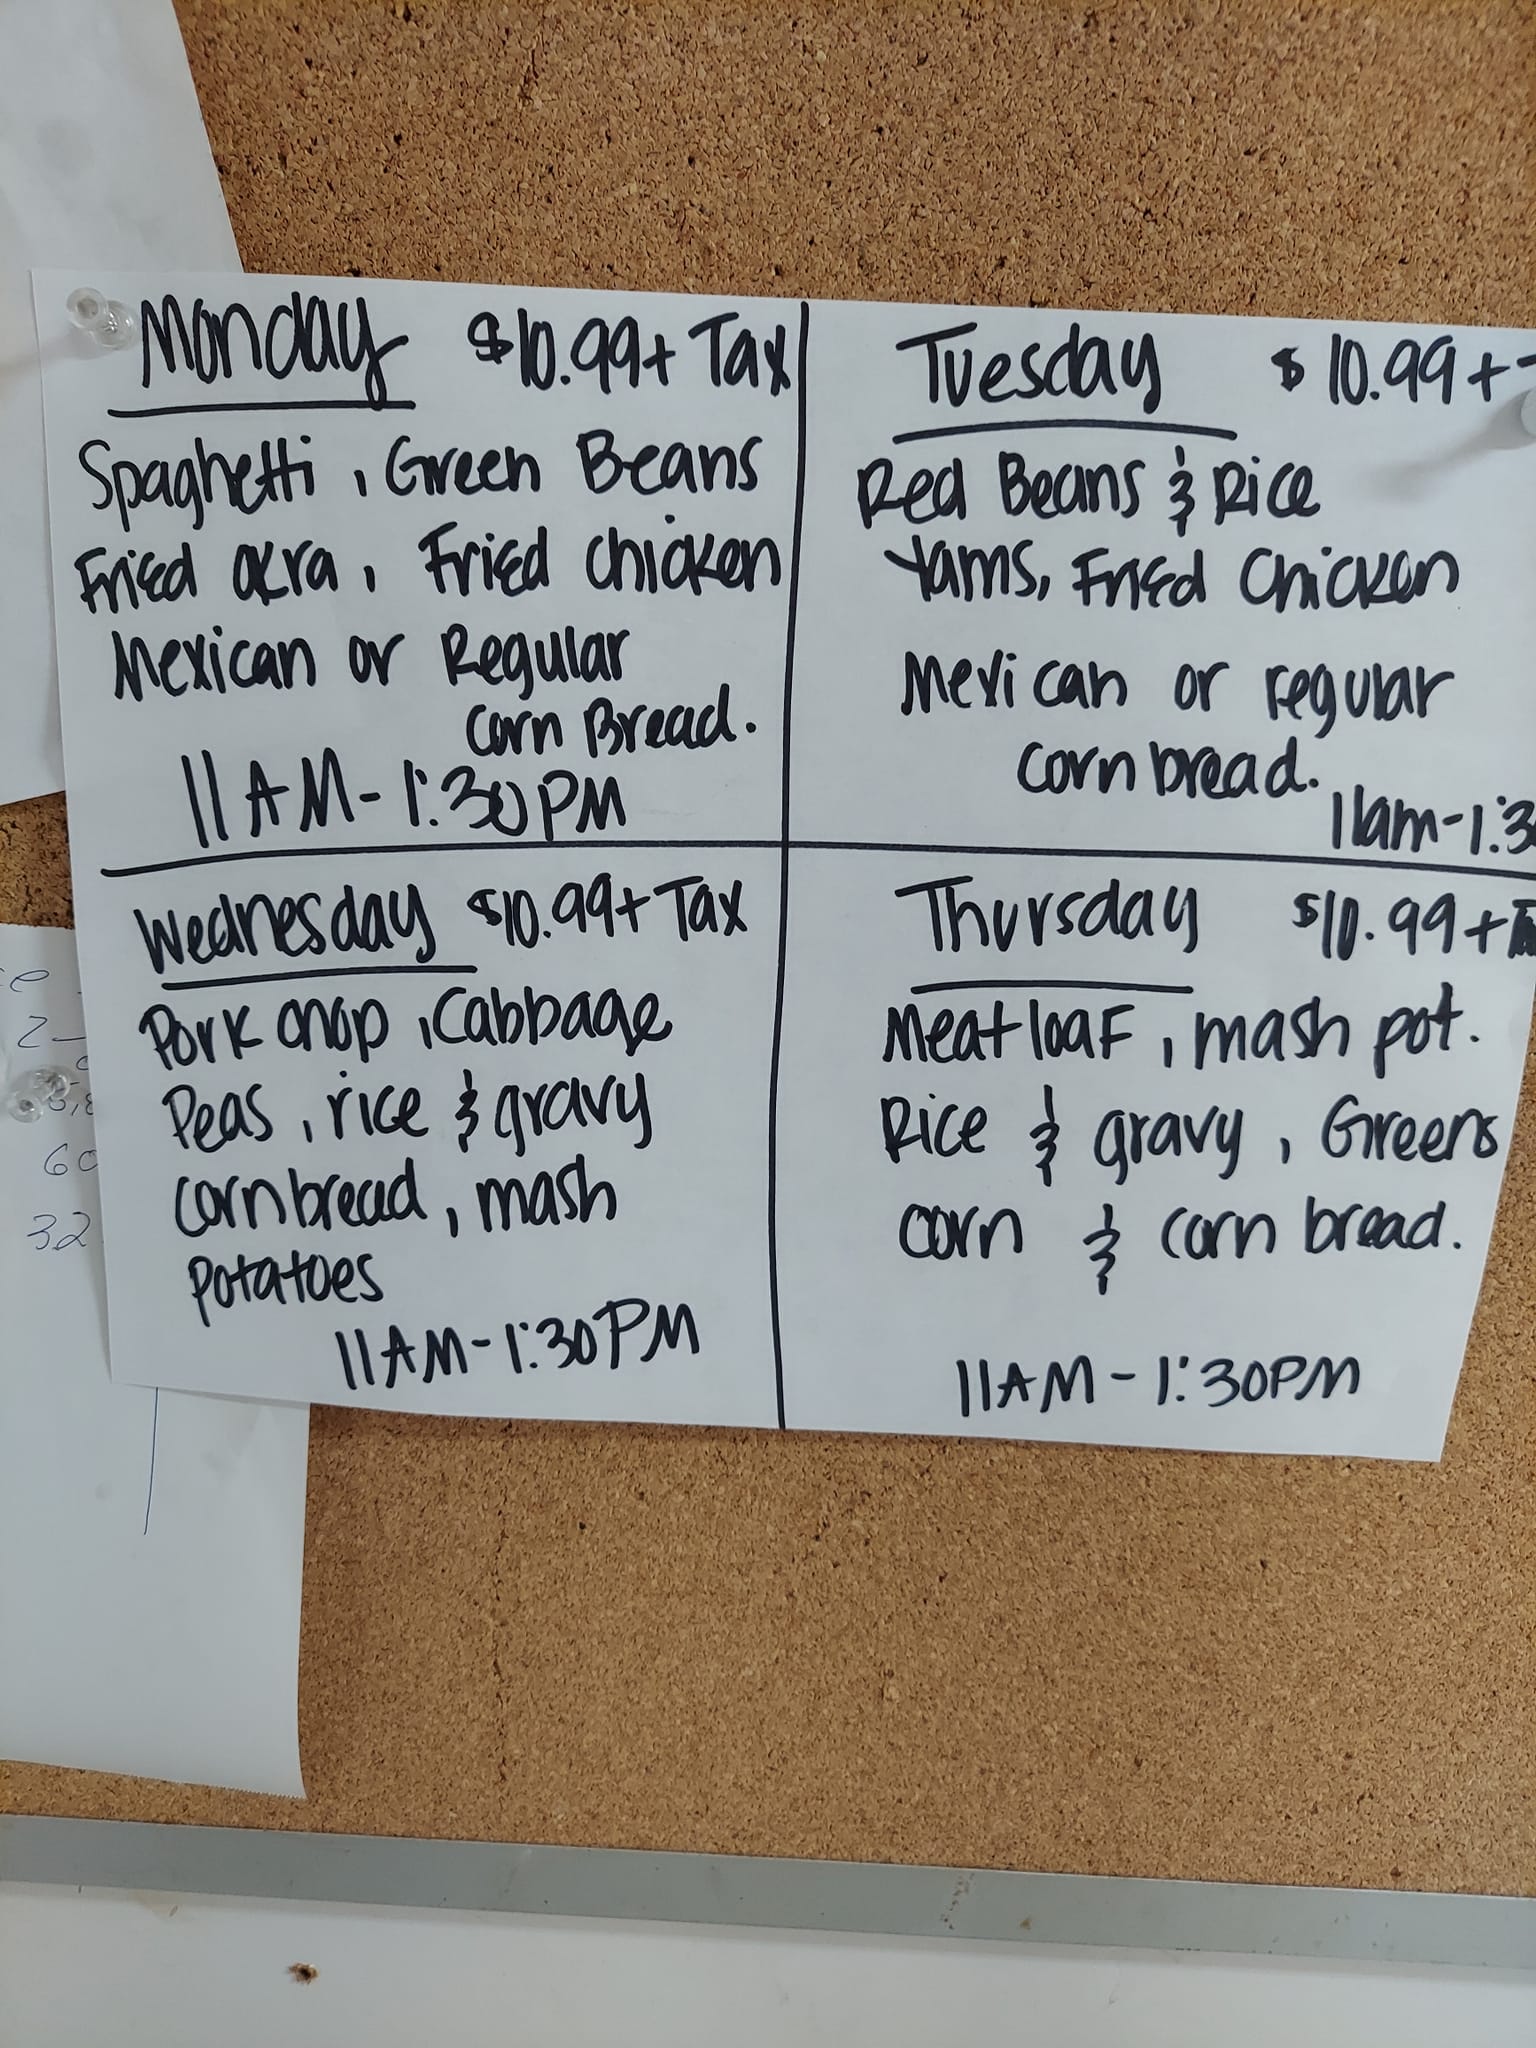 Monday $10.99+ Tax
Spaghetti, Green Beans
Fried okra, Fried chicken
Mexican or Regular
corn Bread.
11AM-1:30PM
Tuesday $10.99+
Red Beans & Rice
Yams, Fried Chicken
Mexican or regular
corn bread.
11am-1:3
Wednesday $10.99+ Tax
Pork chop, Cabbage
Peas, rice & gravy
cornbread, mash
potatoes
11AM-1:30PM
Thursday $10.99+
Meatloaf, mash pot.
Rice & gravy, Greens
corn & corn bread.
11AM-1:30PM
60
32